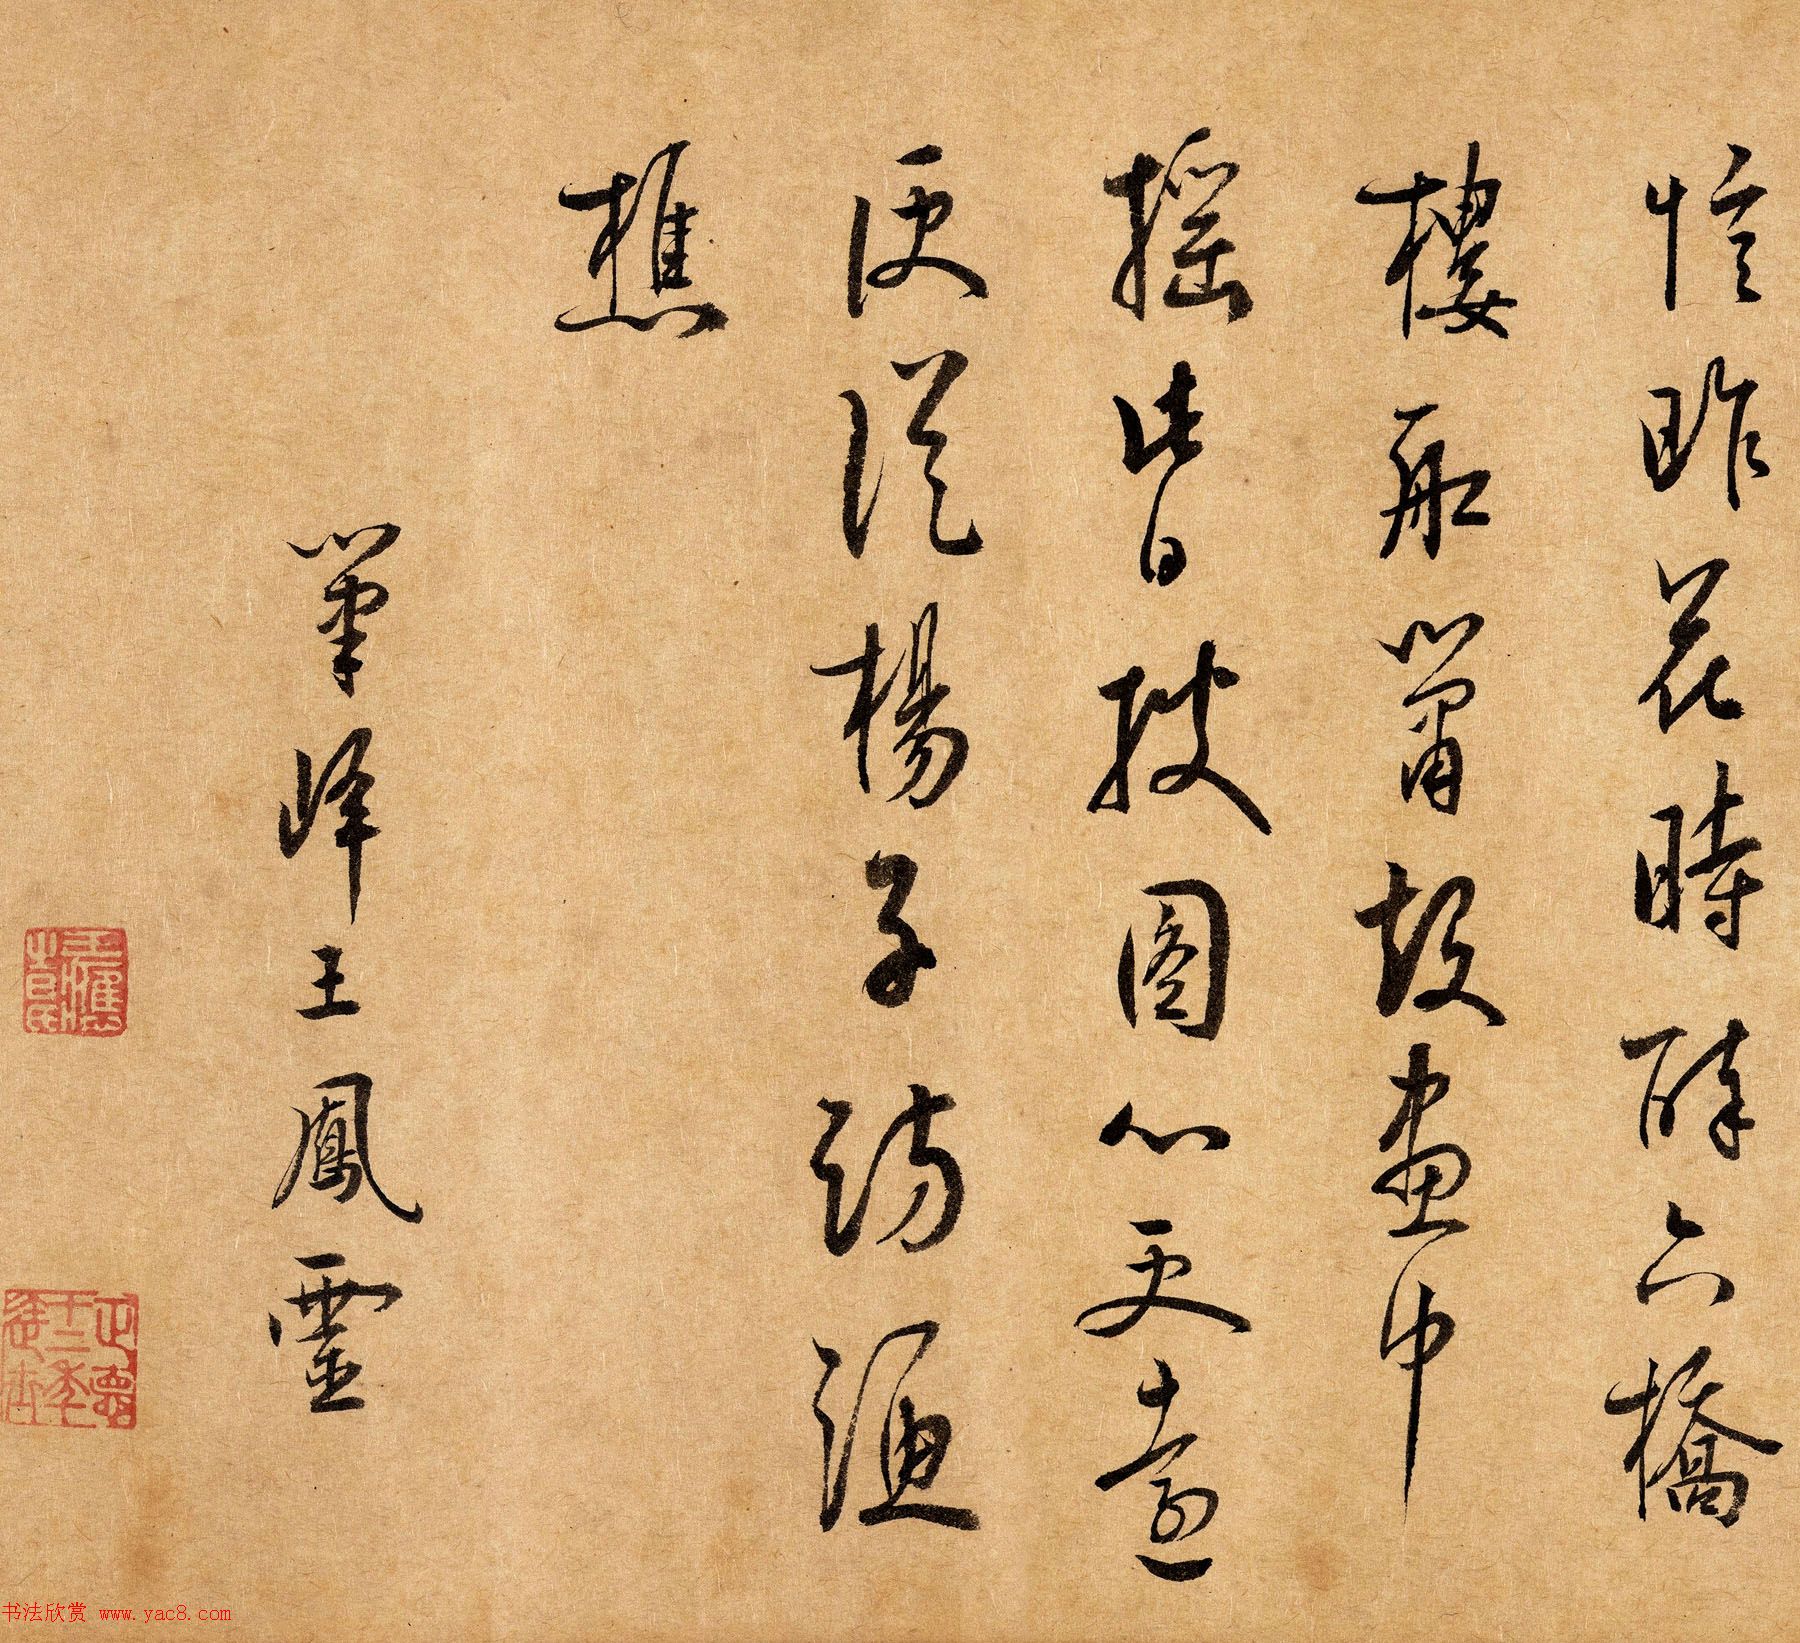 憶昨花時醉六橋
樓船簫鼓畫中
搖此日披圖心更遠
便從楊子訪漁
樵
筆峰王鳳靈
書法欣赏 www.yac8.com